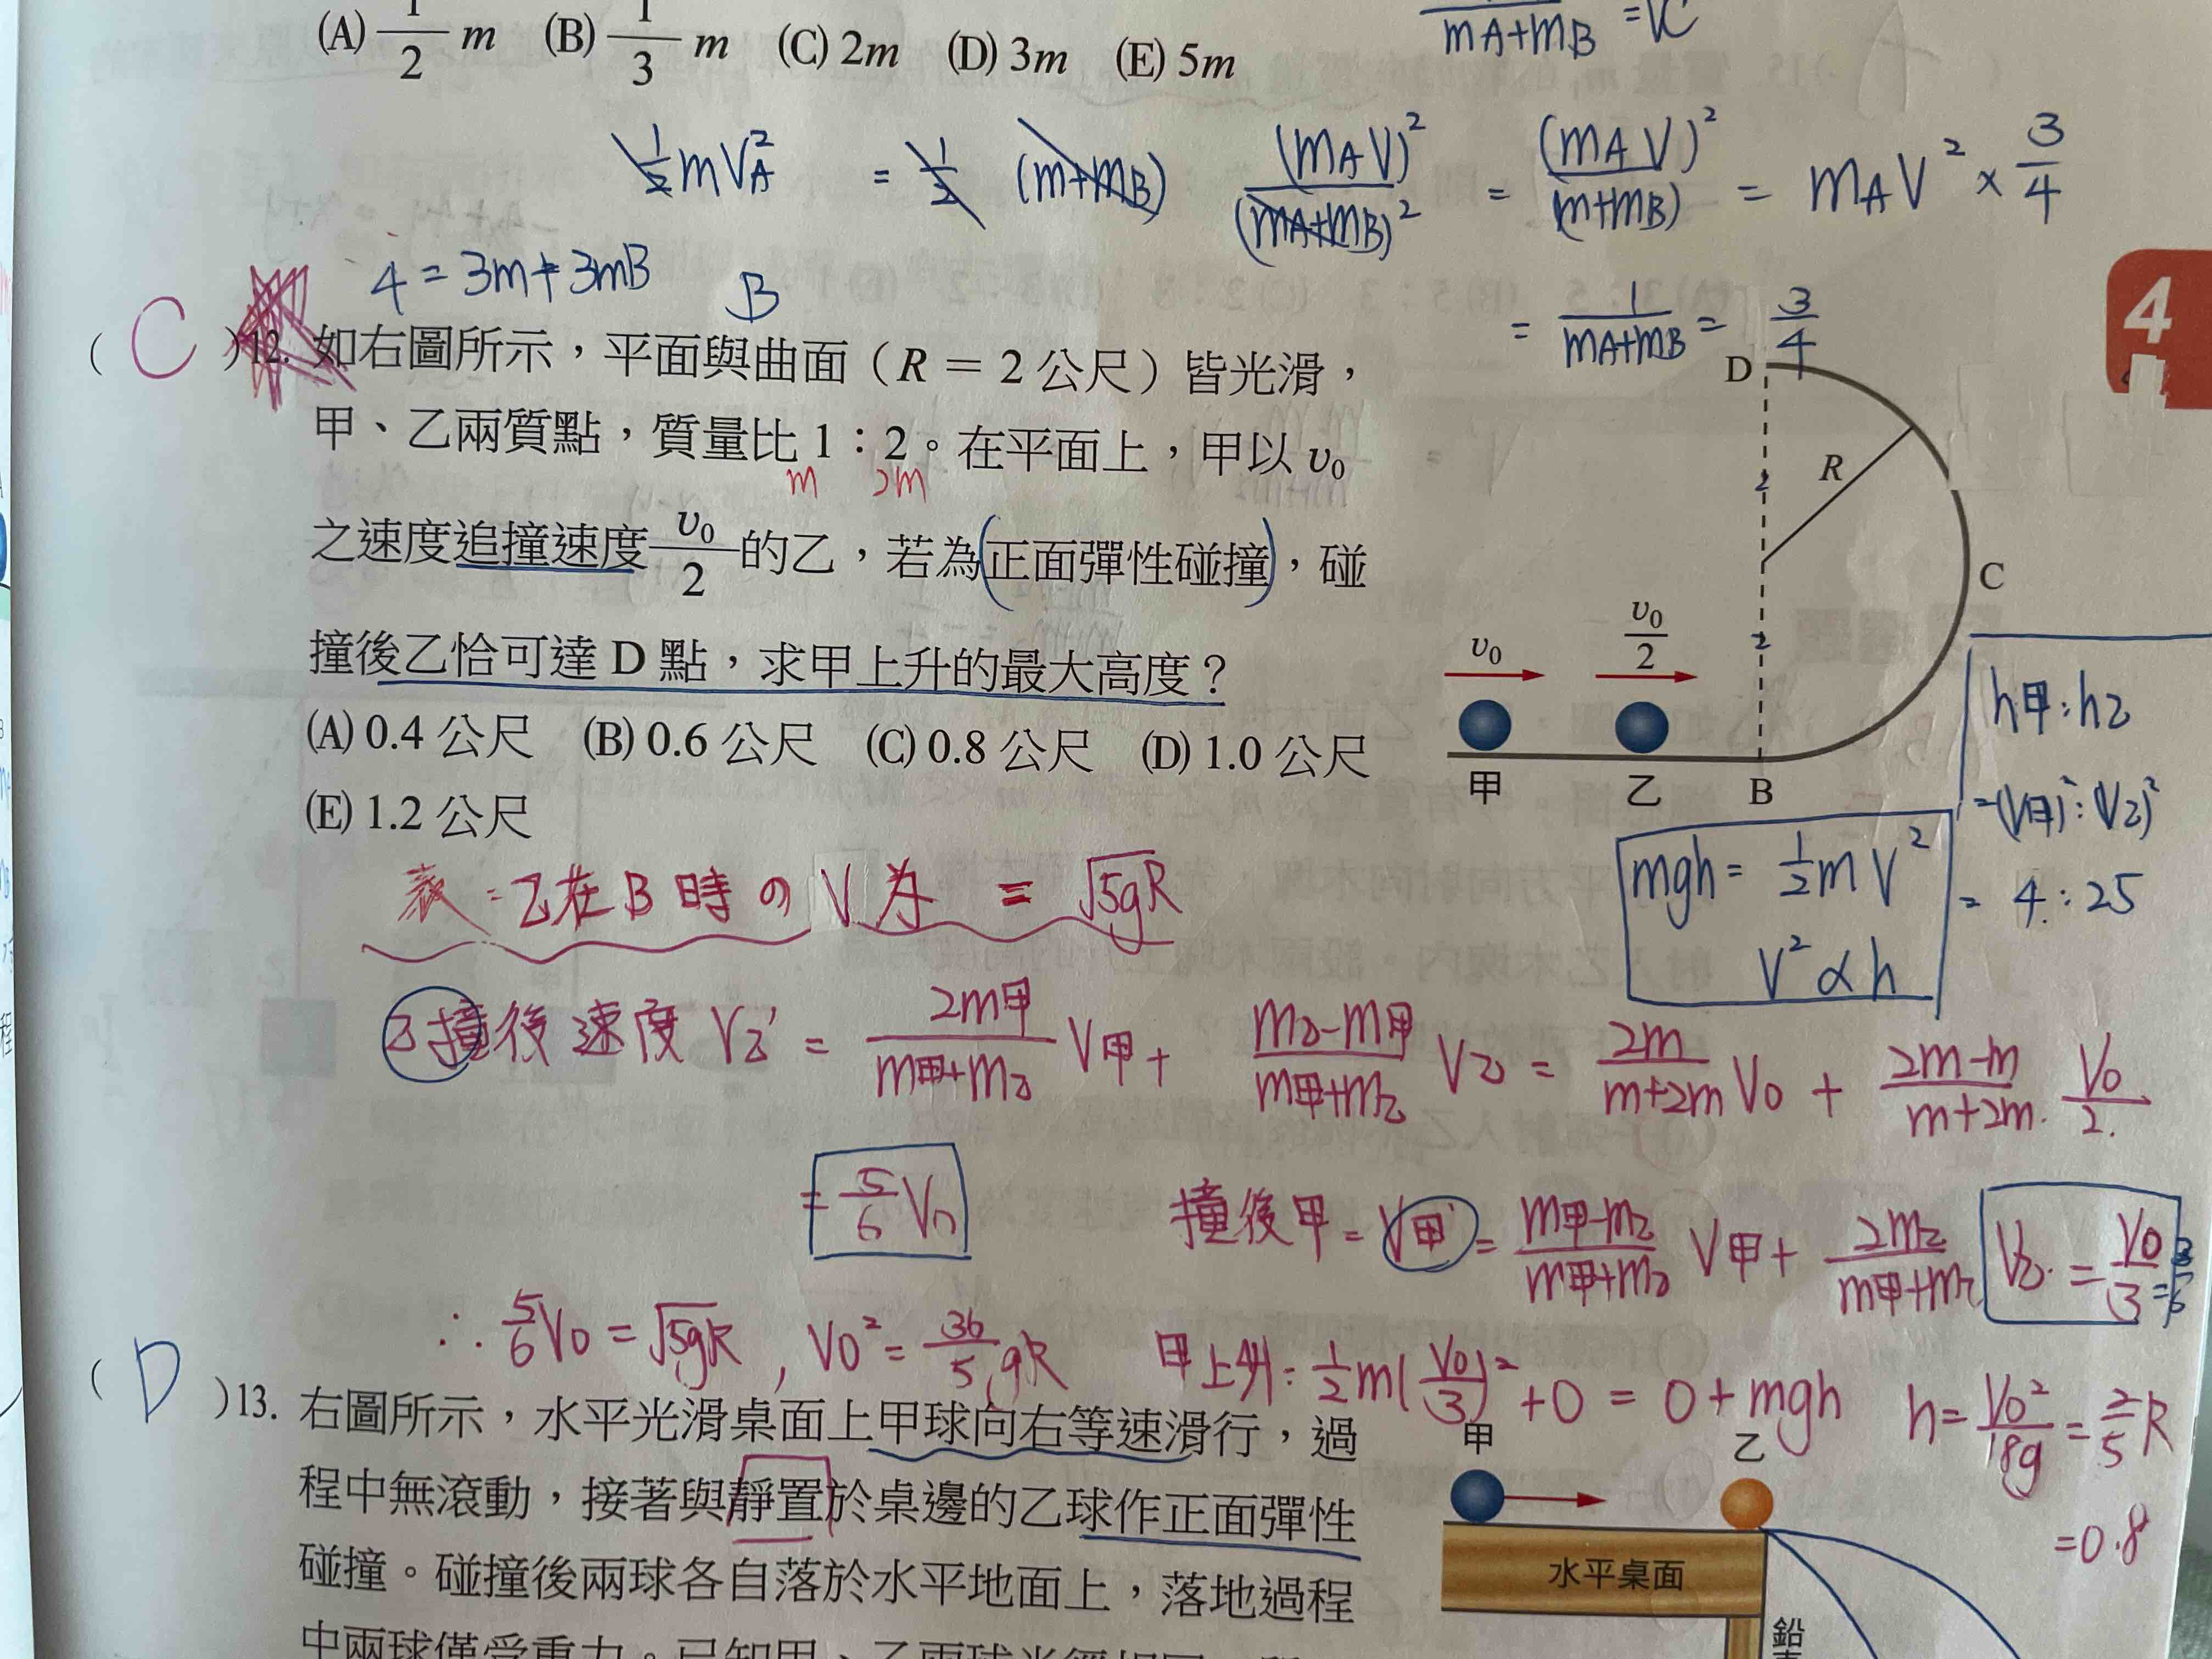 (A) 1/2 m (B) 1/3 m (C) 2m (D) 3m (E) 5m
mA+mB =VC
1/2 mVA² = 1/2 (m+mB) (mAV)²/(mA+mB)² = (mAV)²/(m+mB) = mAV² × 3/4
4 = 3m+3mB B
= 1/(mA+mB) = 3/4
( C )12. 如右圖所示，平面與曲面（R = 2 公尺）皆光滑，
甲、乙兩質點，質量比 1：2。在平面上，甲以 υ0
m 2m
之速度追撞速度 υ0/2 的乙，若為(正面彈性碰撞)，碰
撞後乙恰可達 D 點，求甲上升的最大高度？
(A) 0.4 公尺 (B) 0.6 公尺 (C) 0.8 公尺 (D) 1.0 公尺
(E) 1.2 公尺
D
R
2
C
2
υ0
υ0/2
甲 乙 B
h甲:h乙
=(V甲)²:(V乙)²
= 4:25
mgh = 1/2 mV²
V² ∝ h
表:乙在B時の V 為 = √5gR
乙撞後速度 V乙' = 2m甲/(m甲+m乙) V甲 + (m乙-m甲)/(m甲+m乙) V乙 = 2m/(m+2m) V0 + (2m-m)/(m+2m) · V0/2
= 5/6 V0
撞後甲 = V甲' = (m甲-m乙)/(m甲+m乙) V甲 + 2m乙/(m甲+m乙) V乙 = V0/3
∴ 5/6 V0 = √5gR , V0² = 36/5 gR
甲上升: 1/2 m(V0/3)² + 0 = 0 + mgh h = V0²/18g = 2/5 R
=0.8
( D )13. 右圖所示，水平光滑桌面上甲球向右等速滑行，過
程中無滾動，接著與靜置於桌邊的乙球作正面彈性
碰撞。碰撞後兩球各自落於水平地面上，落地過程
中兩球僅受重力。已知甲、乙兩球
甲 乙
水平桌面
鉛
4